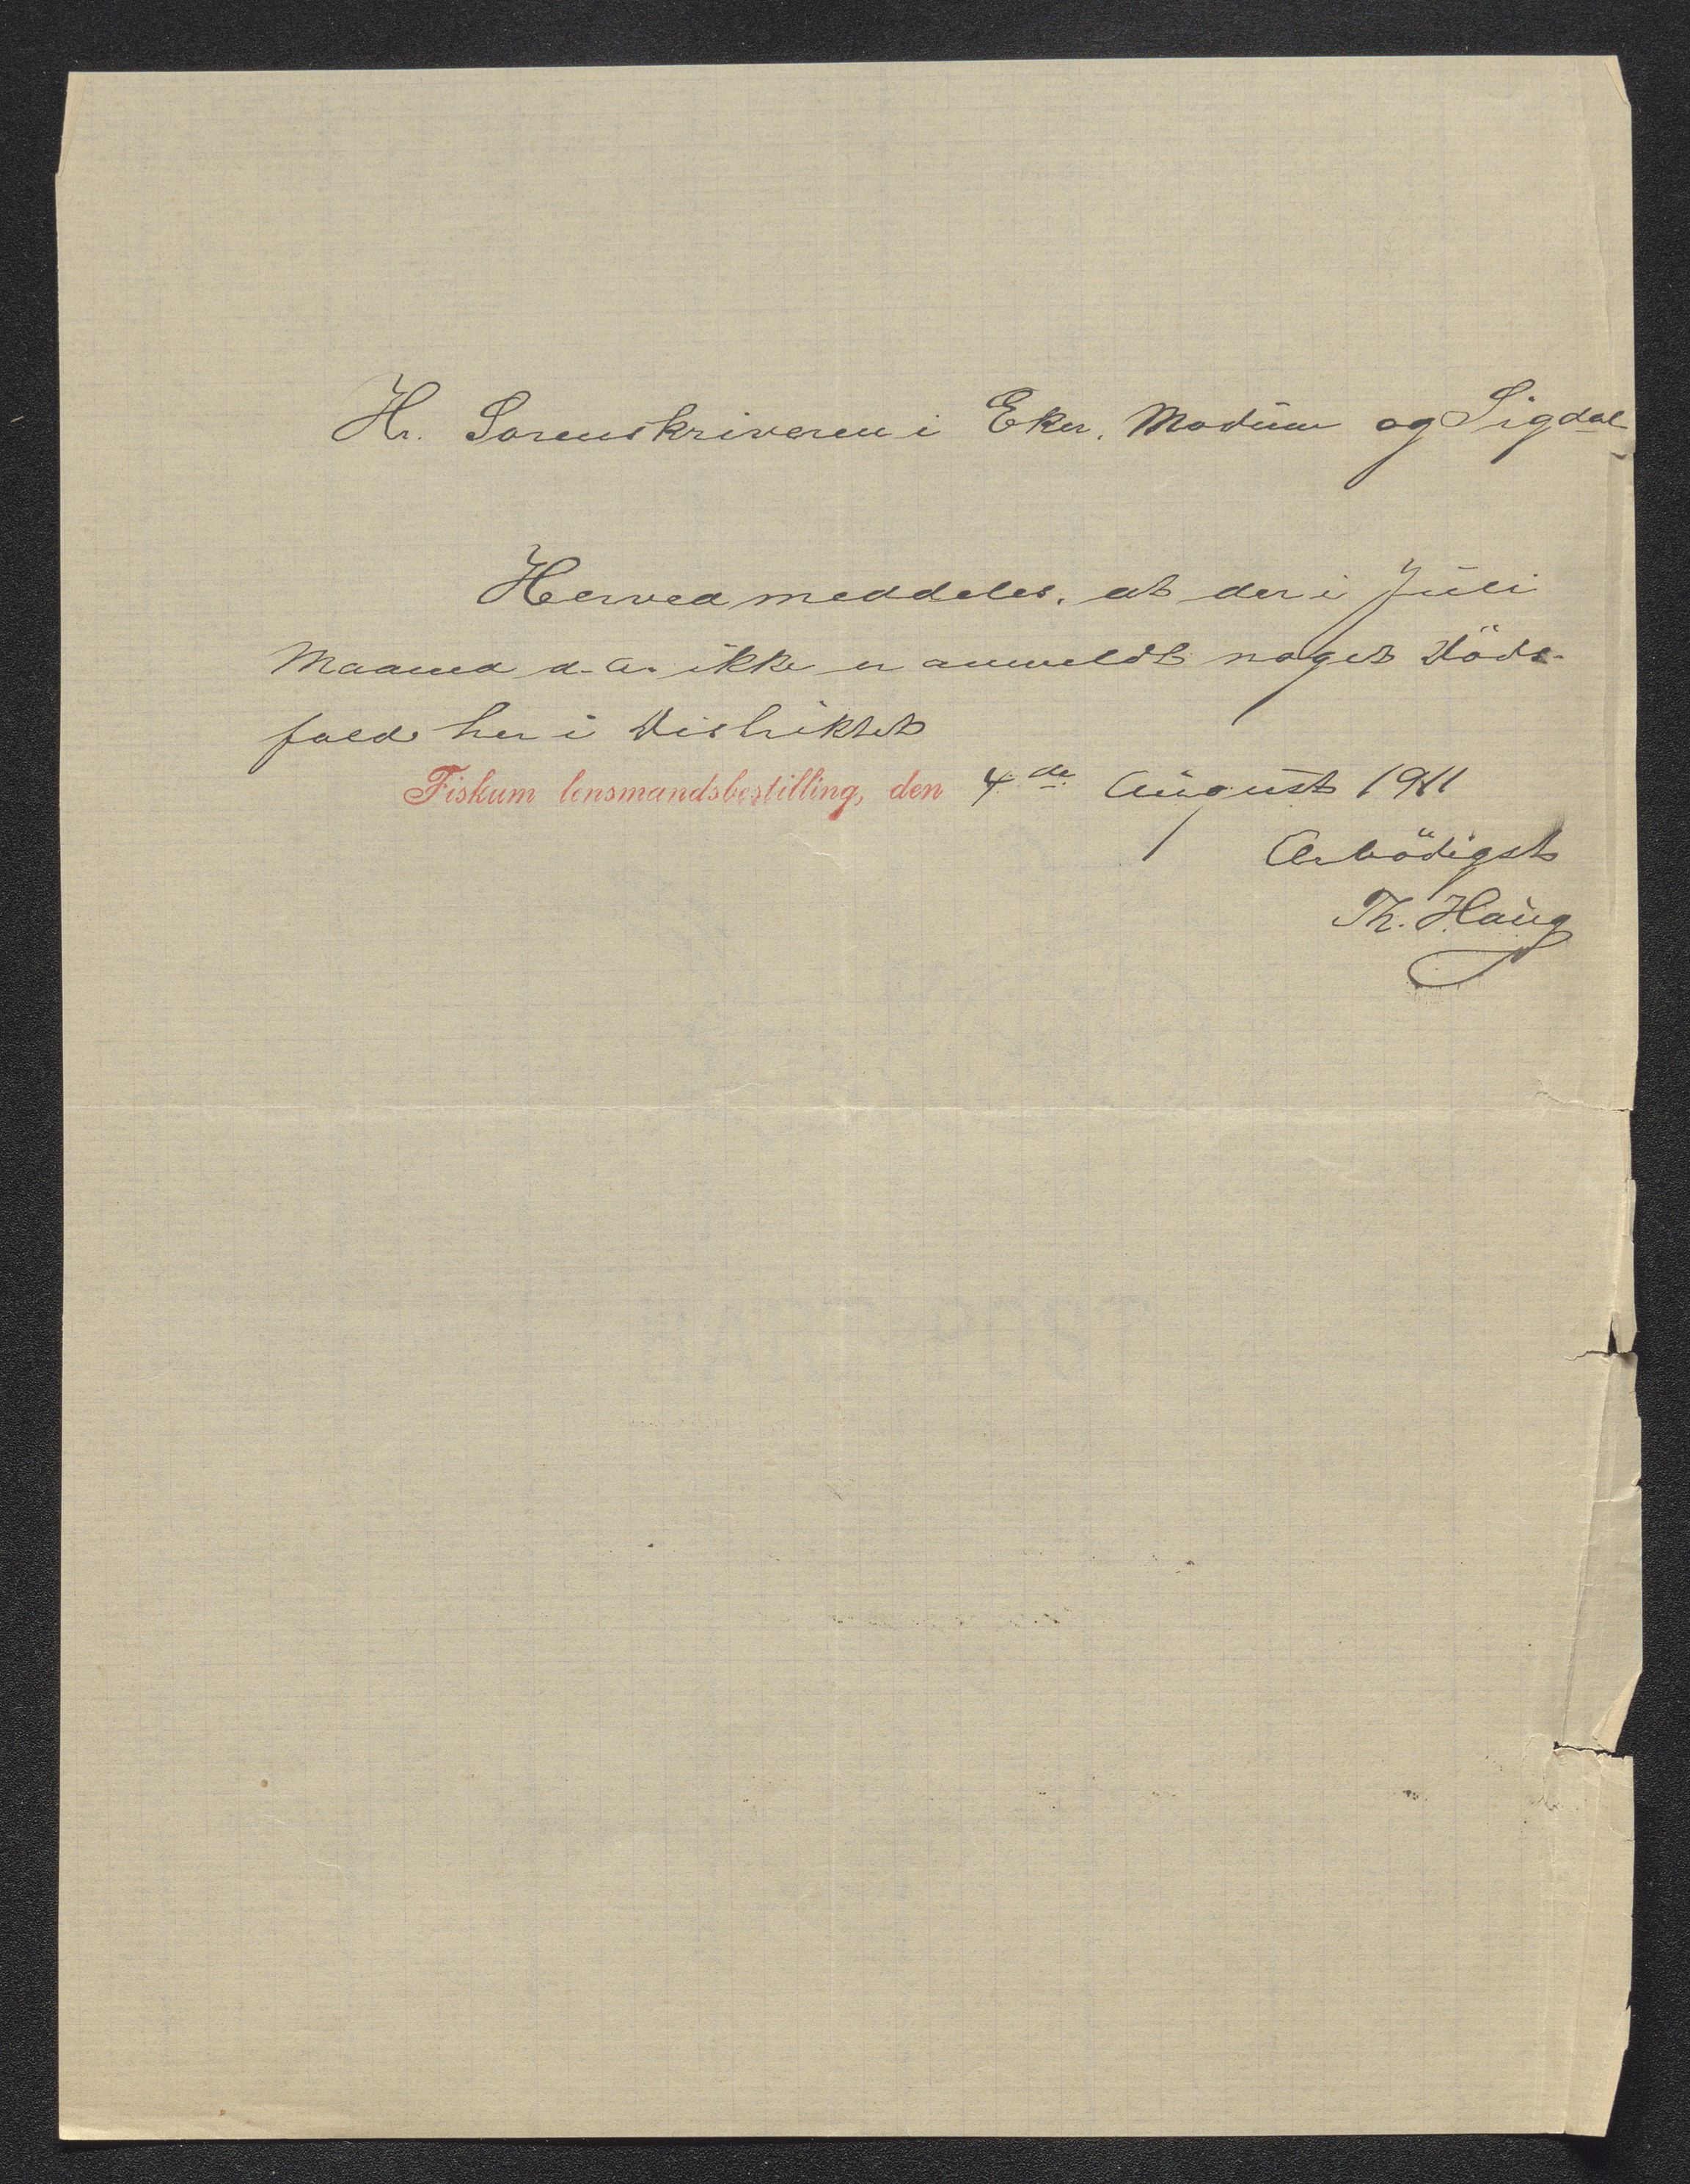 Hr. Sorenskriveren i Eker, Modum og Sigdal
Herved meddeles, at der i Juli
Maaned d. A. ikke er anmeldt noget Döds-
fald her i Distriktet
Fiskum lensmandsbestilling, den 4de August 1911
Ærbödigst
Th. Haug